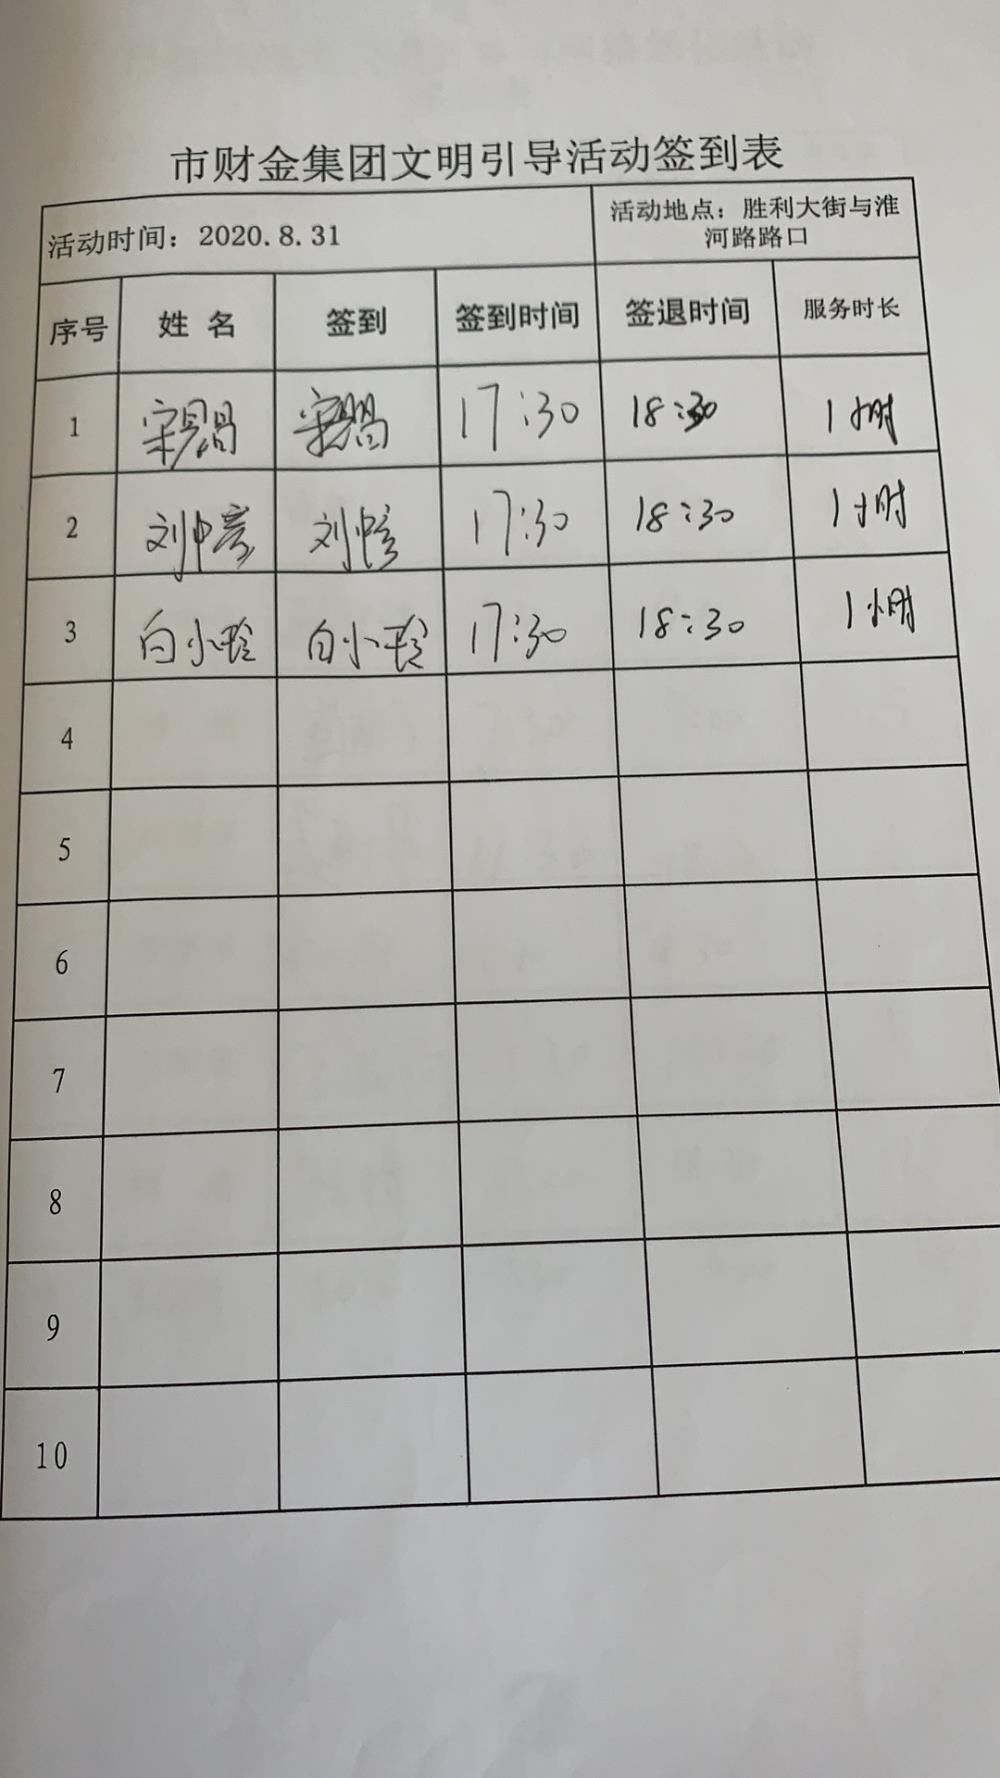 市财金集团文明引导活动签到表
活动时间：2020.8.31
活动地点：胜利大街与淮
河路路口
序号 姓 名 签到 签到时间 签退时间 服务时长
1 17:30 18:30 1小时
2 刘中彦 刘中彦 17:30 18:30 1小时
3 白小玲 白小玲 17:30 18:30 1小时
4
5
6
7
8
9
10